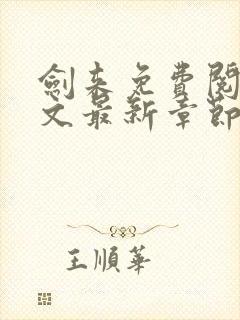 劍來免費閱
文最新章節
王順華